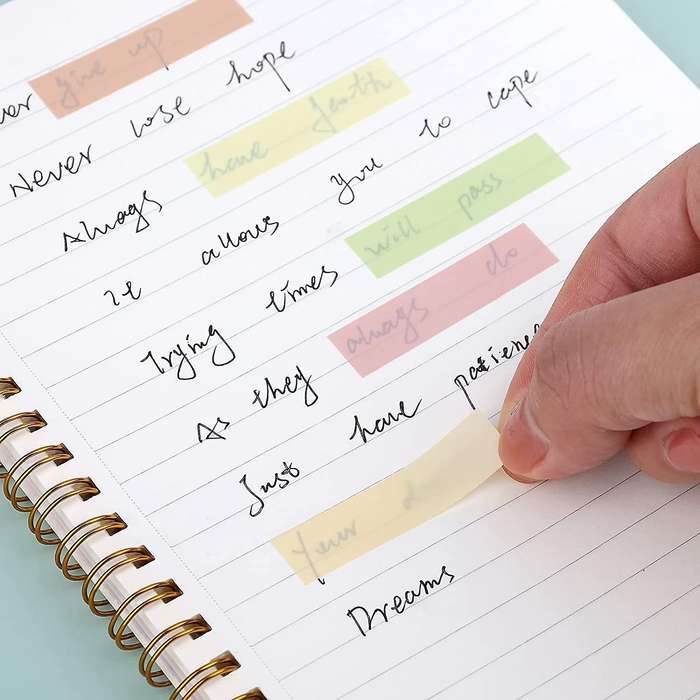 give up
Never lose hope
Always have faith
it allows you to cope
Trying times will pass
As they always do
Just have patience
Your
Dreams